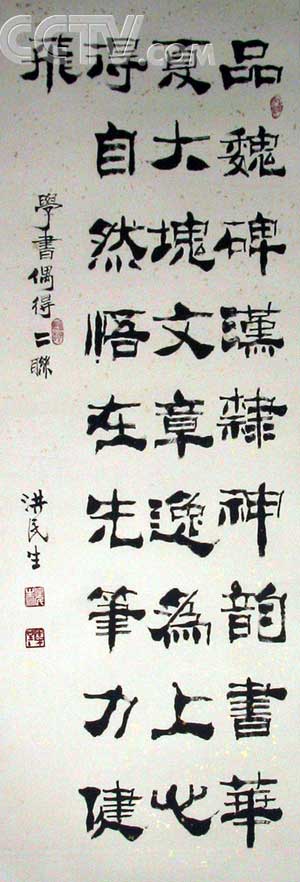 CCTV.com
品魏碑漢隸神韵書華
夏大塊文章逸為上心
得自然悟在先筆力健
飛
學書偶得二聯
洪民生